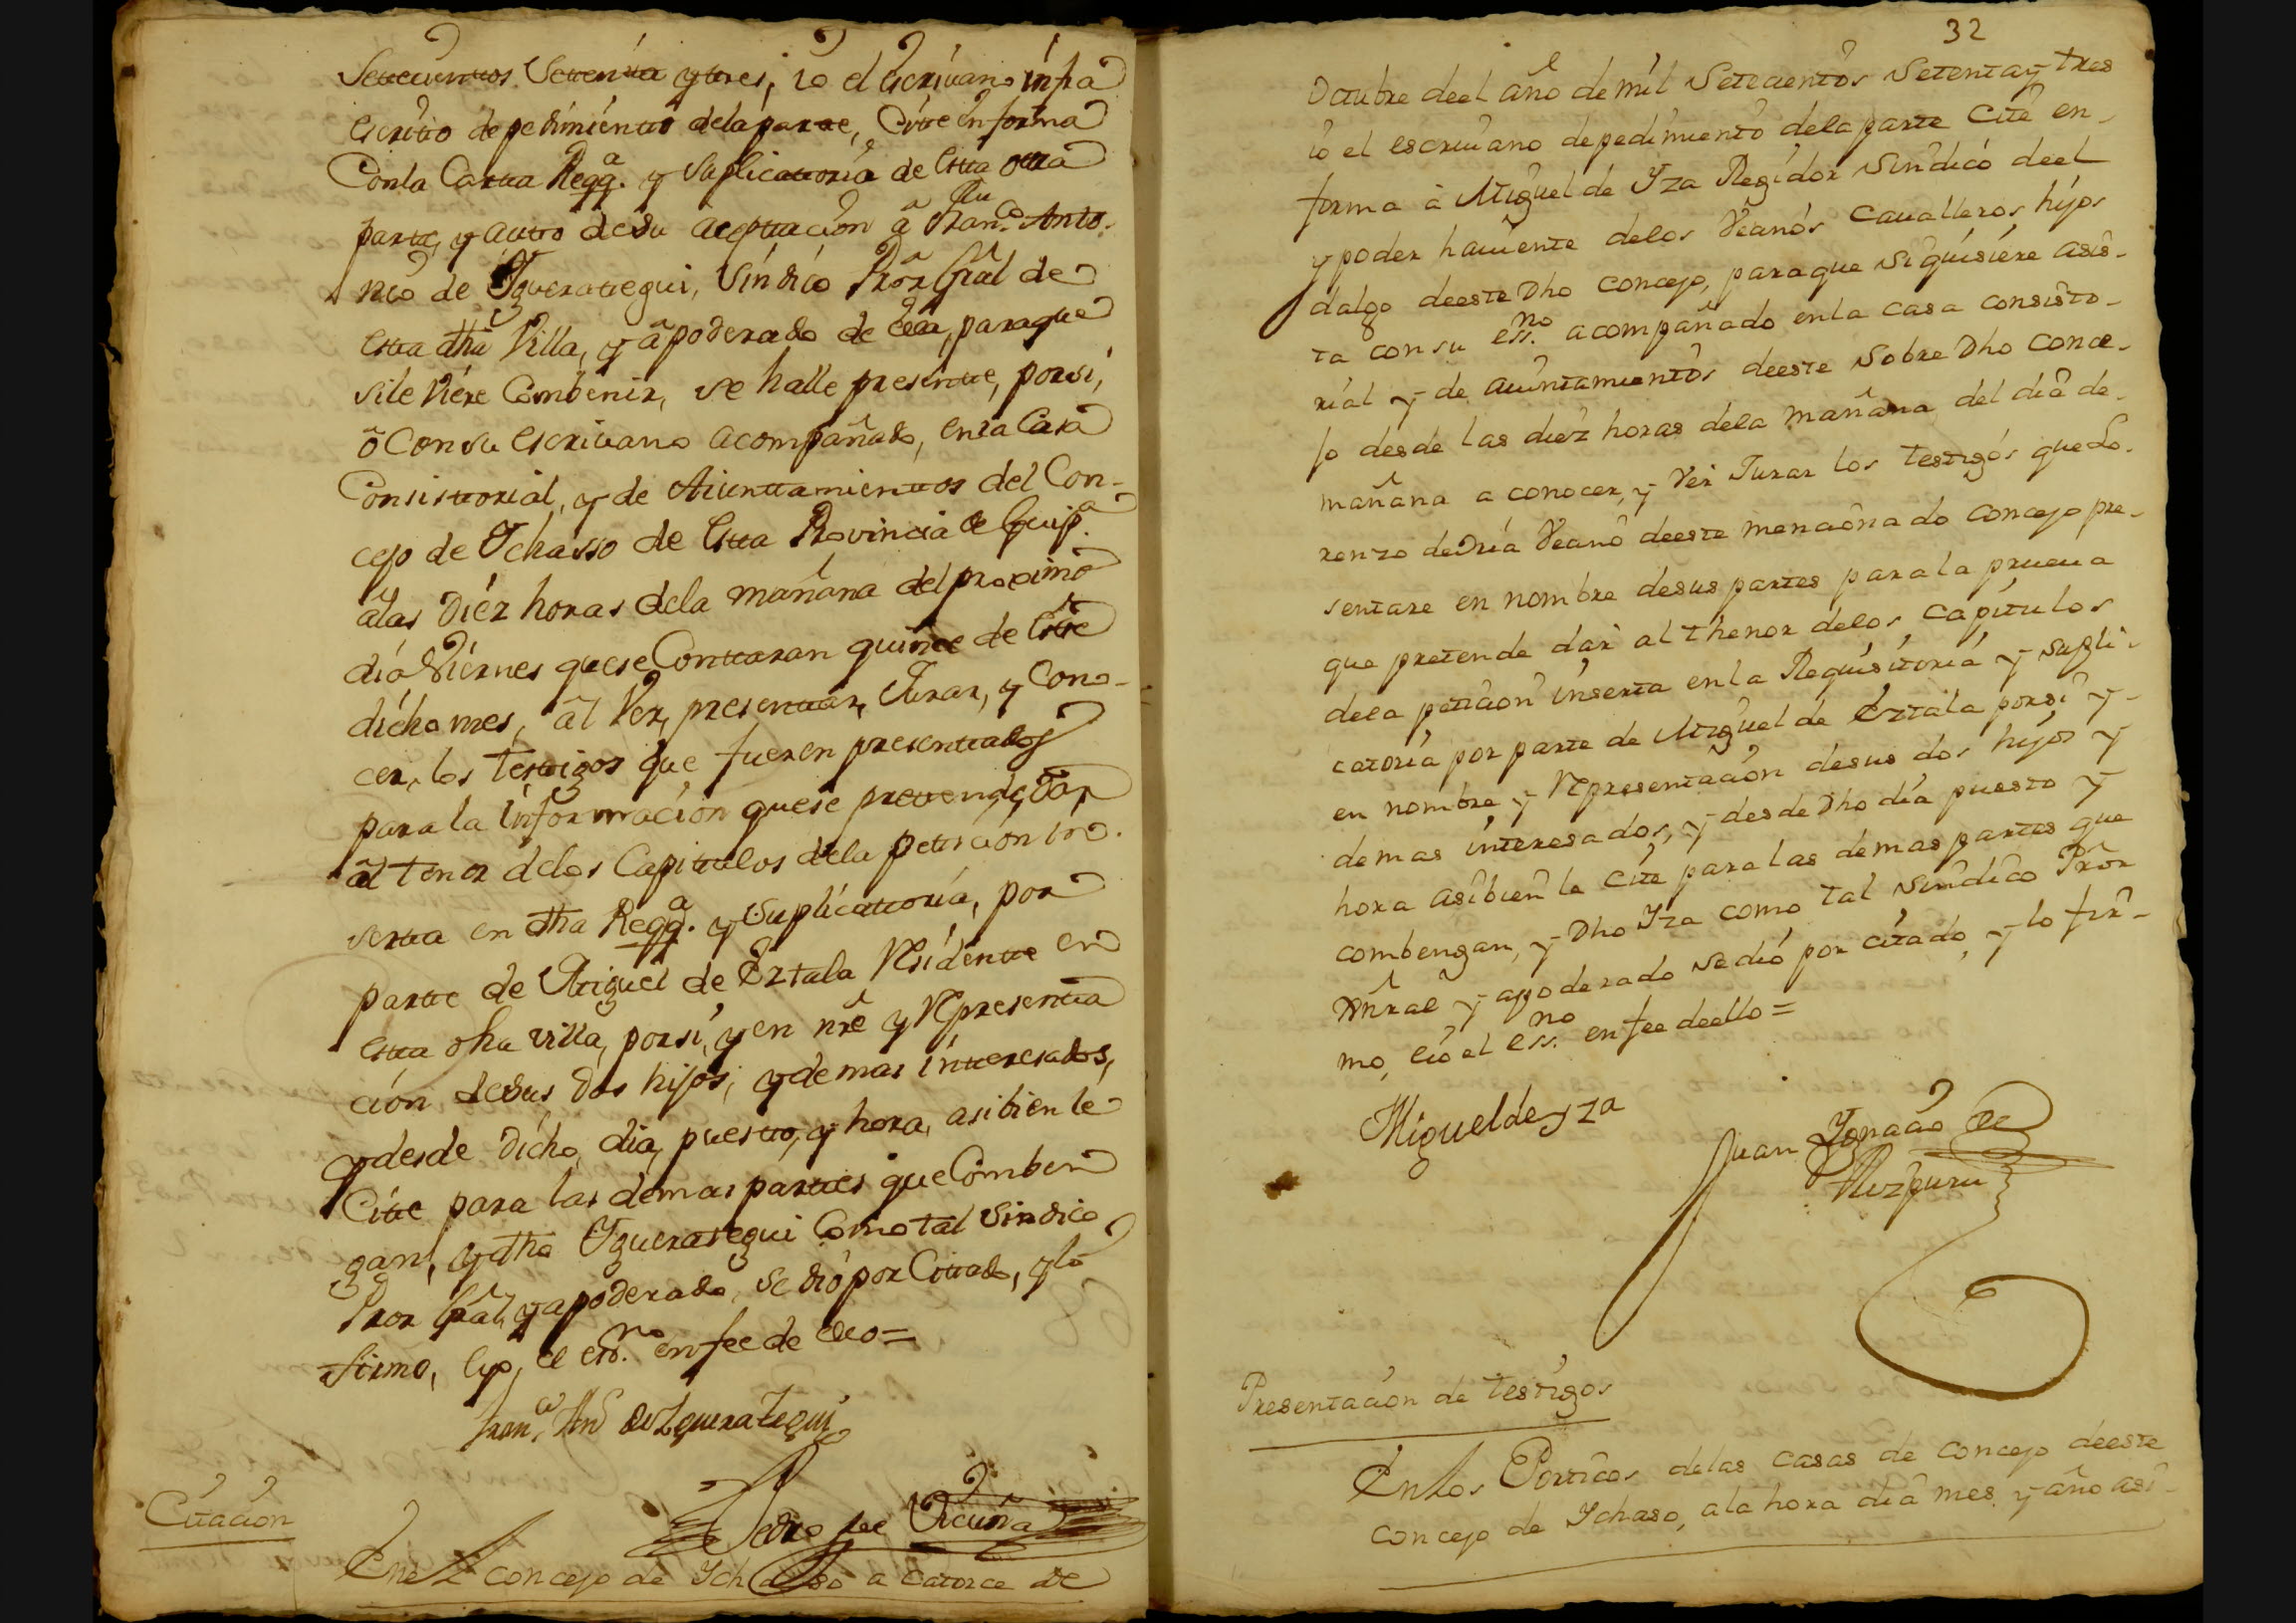 Setecientos Setenta y tres, io el escrivano infra
escrito de pedimiento dela parte, Cite en forma
Con la Carta Reqq.ª y Suplicatoria de esta otra
parte, y auto de su aceptacion â Fran.co Anto-
nio de Yguerategui, Síndico Prõr Gral de
esta dha Villa, y apoderado de ella, para que
si le viere Combenir, se halle presente, por sí,
ô Con su escrivano acompañado, en la Casa
Consistorial, y de Aiuntamientos del Con-
cejo de Ychasso de esta Provincia de Guip.a
a las Diez horas dela mañana del proximo
día Viernes que se Contaran quince de este
dicho mes, âl Ver, presentar, Jurar, y Cono-
cer, los testigos que fueren presentados
para la informacion que se pretende Dar
âl tenor delos Capitulos dela peticion in-
serta en dha Reqq.ª y Suplicatoria, por
parte de Miguel de Eztala Residente en
esta dha villa, por sí, y en nrẽ y Representa
ción de sus Dos hijos, y demas interesados,
y desde Dicho, dia, puesto, y hora, asibien le
Cite para las demas partes que Comben
gan, y dho Yguerategui Como tal Sindico
Prõr Gral, y apoderado, se dió por Citado, y lo
firmo, e yo, el esno. en fee de ello =
Franco. Anto de Yguerategui
Pedro Jph Vicuña
Citacion
En el concejo de Ychasso a catorce de
32
Octubre de el año de mil Setecientos Setenta y tres
io el escriuano de pedimiento dela parte Cite en
forma â Miguel de Yza Regidor Sindicó de el
y poder hauiente delos Vecanós Caualleros hijos
dalgo de este Dho Concejo, para que si quisiere asis-
ta con su ess.no acompañado en la casa consisto-
rial y de aiuntamientos de este sobre Dho Conce-
jo desde las diez horas dela mañana del dia de
mañana a conocer, y Ver Jurar los testigós que Lo-
renzo de Dria Vecanó de este mencionado Concejo pre-
sentare en nombre de sus partes para la prueua
que pretende dar al thenor delos capitulos
dela peticion inserta en la Requisitoria y supli-
catoria por parte de Miguel de Eztala por si y
en nombre y Representacion de sus dos hijos y
demas interesados, y desde Dho dia puesto y
hora asibien le cite para las demas partes que
combengan, y Dho Yza como tal Sindico Prõr
Gñral y apoderado se dió por citado, y lo fir-
mo, e io el ess.no en fee de ello =
Miguel de Yza
Juan Ygnacio de
Aizpuru
Presentacion de testigos
En los Porticos delas casas de concejo de este
concejo de Ychaso, a la hora dia mes y año asi